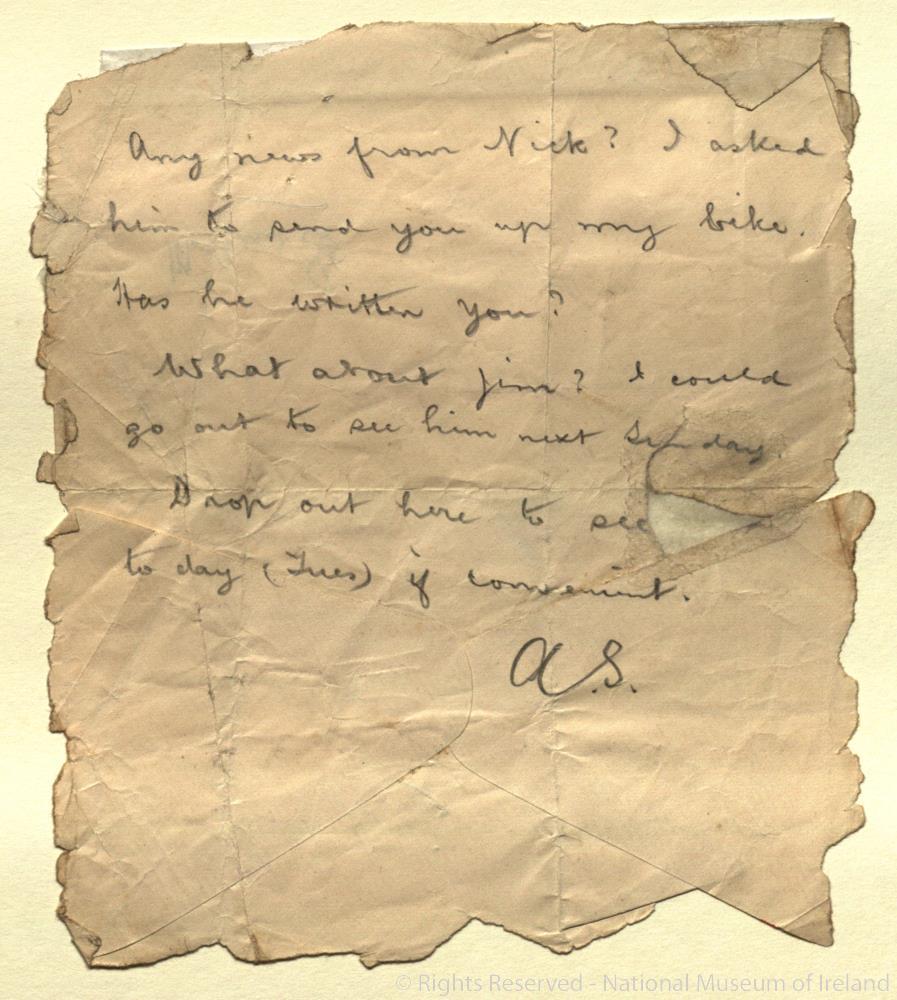 Any news from Nick? I asked
him to send you up my bike.
Has he written you?
What about Jim? I could
go out to see him next Sunday.
Drop out here to see
to day (Tues) if convenient.
A.S.
© Rights Reserved - National Museum of Ireland